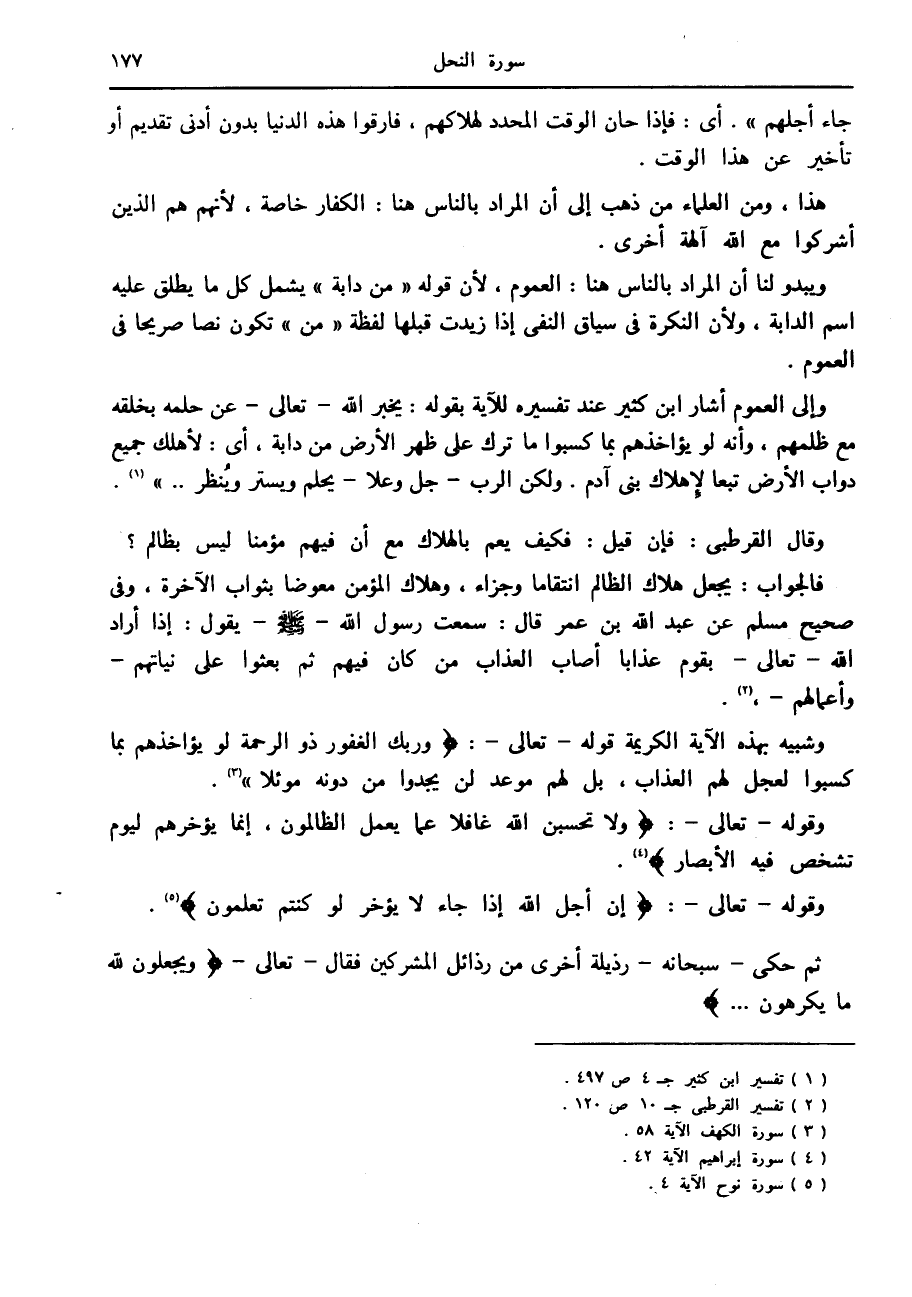 سورة النحل ١٧٧
جاء أجلهم » . أى : فإذا حان الوقت المحدد لهلاكهم ، فارقوا هذه الدنيا بدون أدنى تقديم أو
تأخير عن هذا الوقت .
هذا ، ومن العلماء من ذهب إلى أن المراد بالناس هنا : الكفار خاصة ، لأنهم هم الذين
أشركوا مع الله آلهة أخرى .
ويبدو لنا أن المراد بالناس هنا : العموم ، لأن قوله « من دابة » يشمل كل ما يطلق عليه
اسم الدابة ، ولأن النكرة فى سياق النفى إذا زيدت قبلها لفظة « من » تكون نصا صريحا فى
العموم .
وإلى العموم أشار ابن كثير عند تفسيره للآية بقوله : يخبر الله – تعالى – عن حلمه بخلقه
مع ظلمهم ، وأنه لو يؤاخذهم بما كسبوا ما ترك على ظهر الأرض من دابة ، أى : لأهلك جميع
دواب الأرض تبعا لإهلاك بنى آدم . ولكن الرب – جل وعلا – يحلم ويستر ويُنظر .. » (١) .
وقال القرطبى : فإن قيل : فكيف يعم بالهلاك مع أن فيهم مؤمنا ليس بظالم ؟
فالجواب : يجعل هلاك الظالم انتقاما وجزاء ، وهلاك المؤمن معوضا بثواب الآخرة ، وفى
صحيح مسلم عن عبد الله بن عمر قال : سمعت رسول الله – ﷺ – يقول : إذا أراد
الله – تعالى – بقوم عذابا أصاب العذاب من كان فيهم ثم بعثوا على نياتهم –
وأعمالهم – ،(٢) .
وشبيه بهذه الآية الكريمة قوله – تعالى – : ﴿ وربك الغفور ذو الرحمة لو يؤاخذهم بما
كسبوا لعجل لهم العذاب ، بل لهم موعد لن يجدوا من دونه موئلا »(٣) .
وقوله – تعالى – : ﴿ ولا تحسبن الله غافلا عما يعمل الظالمون ، إنما يؤخرهم ليوم
تشخص فيه الأبصار ﴾(٤) .
وقوله – تعالى – : ﴿ إن أجل الله إذا جاء لا يؤخر لو كنتم تعلمون ﴾(٥) .
ثم حكى – سبحانه – رذيلة أخرى من رذائل المشركين فقال – تعالى – ﴿ ويجعلون لله
ما يكرهون ... ﴾
( ١ ) تفسير ابن كثير جـ ٤ ص ٤٩٧ .
( ٢ ) تفسير القرطبى جـ ١٠ ص ١٢٠ .
( ٣ ) سورة الكهف الآية ٥٨ .
( ٤ ) سورة إبراهيم الآية ٤٢ .
( ٥ ) سورة نوح الآية ٤ .